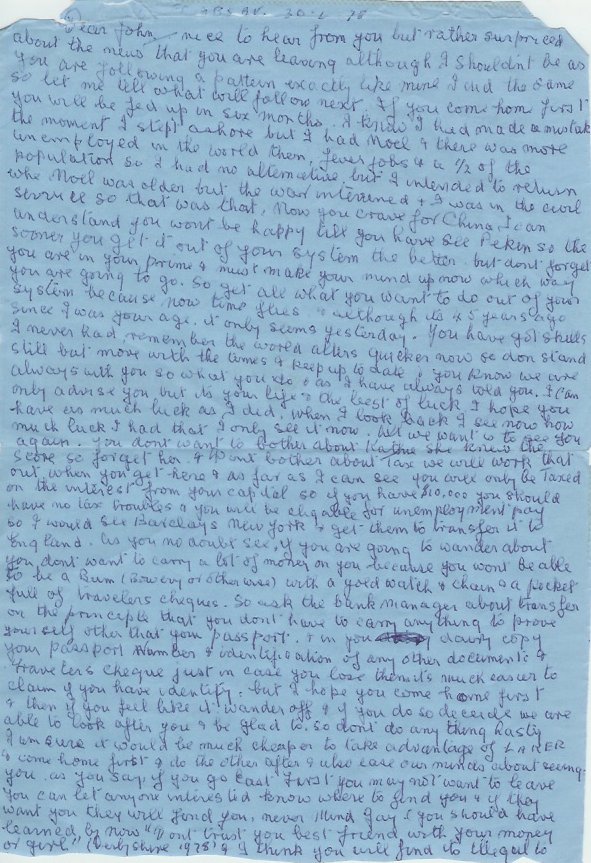 30-6-78
Dear John, nice to hear from you but rather surprised
about the news that you are leaving although I shouldnt be as
you are following a pattern exactly like mine I did the same
so let me tell what will follow next. If you come home first
you will be fed up in six months. I knew I had made a mistake
the moment I stept ashore but I had Noel & there was more
unemployed in the world then, fewer jobs & a 1/2 of the
population so I had no alternative but I intended to return
whe Noel was older but the war intervened & I was in the civil
service so that was that. Now you crave for China, I can
understand you wont be happy till you have see Pekin so the
sooner you get it out of your system the better. but dont forget
you are in your prime & must make your mind up now which way
you are going to go. So get all what you want to do out of your
system because now time flies & although its 45 years ago
since I was your age. it only seems yesterday. You have got skills
I never had, remember the world alters quicker now so don stand
still but move with the times & keep up to date. You know we are
always with you so what you do is as I have always told you. I can
only advise you but its your life & the best of luck I hope you
have as much luck as I did. When I look back I see now how
much luck I had that I only see it now. but we want to see you
again. You dont want to bother about Kathie she knew the
score so forget her. & Dont bother about Tax we will work that
out, when you get here & as far as I can see you will only be Taxed
on the interest from your capital so if you have $10,000 you should
have no tax troubles & you will be eligable for unemployment pay
so I would see Barclays New York & get them to transfer it to
England. As you no doubt see, if you are going to wander about
you dont want to carry a lot of money on you because you wont be able
to be a Bum (Bowery or otherwise) with a gold watch & chain & a pocket
full of travelers cheques. So ask the bank manager about transfer
on the principle that you don't have to carry anything to prove
yourself other that your passport. & in you diary copy
your passport number & identification of any other documents &
Travelers cheque just in case you lose them its much easier to
claim if you have identify. but I hope you come home first
& then if you feel like it wander off & if you do so decide we are
able to look after you & be glad to. so dont do any thing hasty
I am sure it would be much cheaper to take advantage of LAKER
& come home first & do the other after & also ease our minds about seeing
you. as you say, if you go East first you may not want to leave
You can let anyone intirestid know where to find you & if they
want you they will find you. never mind Gay. (you should have
learned by now "Dont trust you best friend with your money
or girl" (Derbyshire 1928) & I think you will find its illegal to